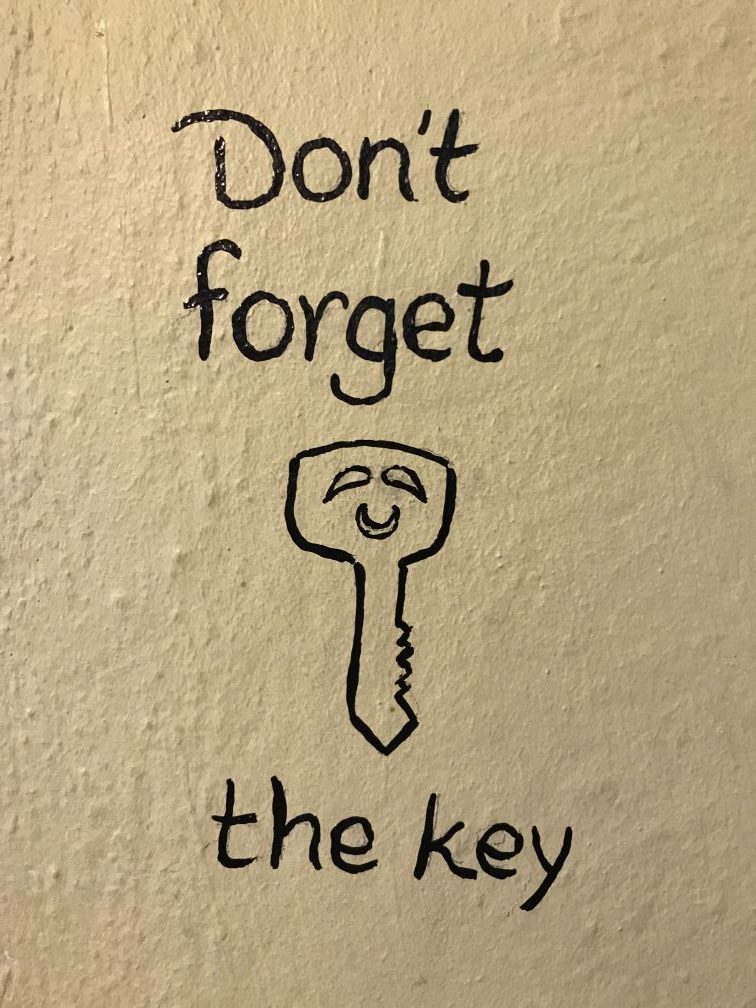 Don't
forget
the key